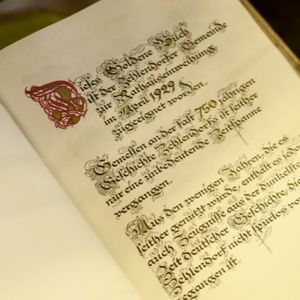 Dieses Goldene Buch
ist der Zehlendorfer Gemeinde
zur Rathauseinweihung
im April 1929
zugeeignet worden.
Gemessen an der fast 750 jährigen
Geschichte Zehlendorfs ist seither
nur eine unbedeutende Zeitspanne
vergangen.
Aus den wenigen Jahren, die es
seither genutzt wurde, enthält es jedoch
auch Zeugnisse aus der dunkelsten
Zeit deutscher Geschichte, die
Zehlendorf nicht spurlos
vergangen ist.